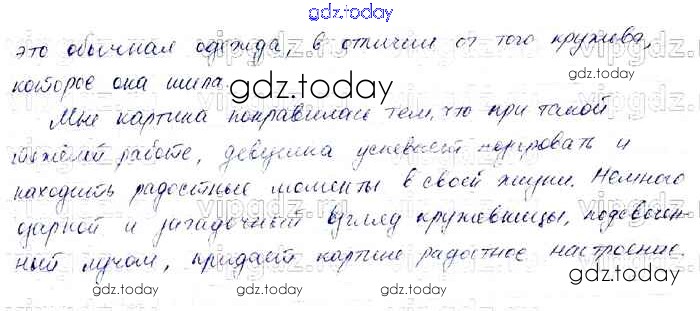 gdz.today
это обычная одежда, в отличие от того кружева,
которое она шила.
gdz.today
Мне картина понравилась тем, что при такой
тяжёлой работе, девушка успевает позировать и
находить радостные моменты в своей жизни. Немного
озорной и загадочный взгляд кружевницы, подсвечен-
ный лучом, придаёт картине радостное настроение.
gdz.today
gdz.today
gdz.today